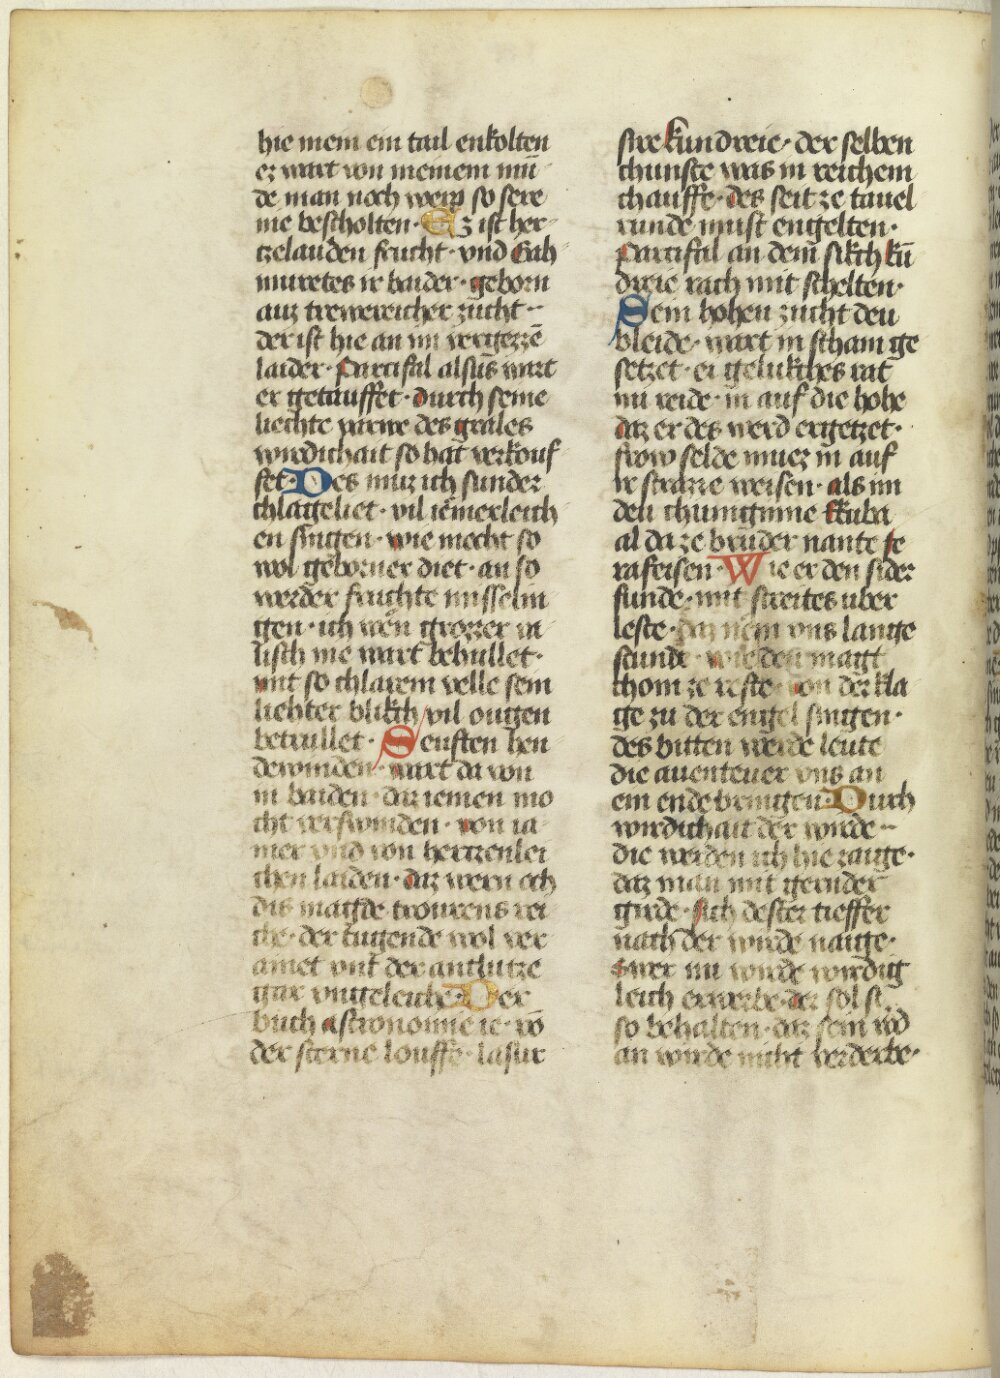 hie mein ein tail enkolten
ez wart von meinem mū
de man noch weip so sere
nie bescholten · Ez ist her
tzelauden frucht · vnd Gah
muretes ir baider · geborn
auz trewereicher zucht ·
der ist hie an im vergezzē
laider · Parcifal alsus wart
er getauffet · durch seine
liechte varwe des grales
wirdichait so hat verkouf
fet · Des muz ich sunder
chlageliet · vil iemerleich
en singen · wie mocht so
wol geborner diet · an so
werder fruchte misselin
gen · ich wen grozzer va
lisch nie wart behullet ·
mit so chlarem velle sein
liehter blikch vil ougen
betrullet · Senften hen
dewinden · wart da von
in baiden · daz iemen mo
cht verswinden · von ia
mer vnd von hertzenlei
chen laiden · daz wern och
dis magde trourens rei
che · der tugende wol ver
amet vnt der antlutze
gar vngeleiche · Der
buch astronomie ie · vō
der sterne louffe · lasur
sire kundreie · der selben
chunste was in reichem
chauffe · des seit ze tauel
runde must engelten ·
Parcifal an dem sikch kū
dreie rach mit schelten ·
Sein hohen zucht deu
bleide · wart in scham ge
setzet · ei gelukches rat
nu reide · in auf die hohe
daz er des werd ergetzet ·
frow selde muez in auf
ir strazze weisen · als im
deu chuniginne Ekuba
al da ze bruder nante fe
rafeisen · Wie er den sider
funde · mit streites uber
leste · daz nem vns lange
stunde · wie deu magt
chom ze reste · von der kla
ge zu der engel singen ·
des bitten werde leute
die auenteuer vns an
ein ende bringen · Durch
wirdichait der wirde ·
die werden ich hie zaige ·
daz man mit gernder
girde · sich dester tieffer
nach der wirde naige ·
swer nu wirde wirdig
leich erwerbe · der sol si
so behalten · daz sein wd
an wirde nicht verderbe ·